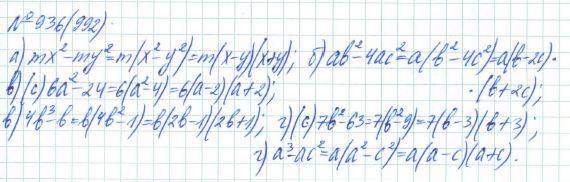 №936(992).
а) mx²-my²=m(x²-y²)=m(x-y)(x+y); б) ab²-4ac²=a(b²-4c²)=a(b-2c)·
в) (с) 6a²-24=6(a²-4)=6(a-2)(a+2); ·(b+2c);
в) 4b³-b=b(4b²-1)=b(2b-1)(2b+1); г) (с) 7b²-63=7(b²-9)=7(b-3)(b+3);
г) a³-ac²=a(a²-c²)=a(a-c)(a+c).